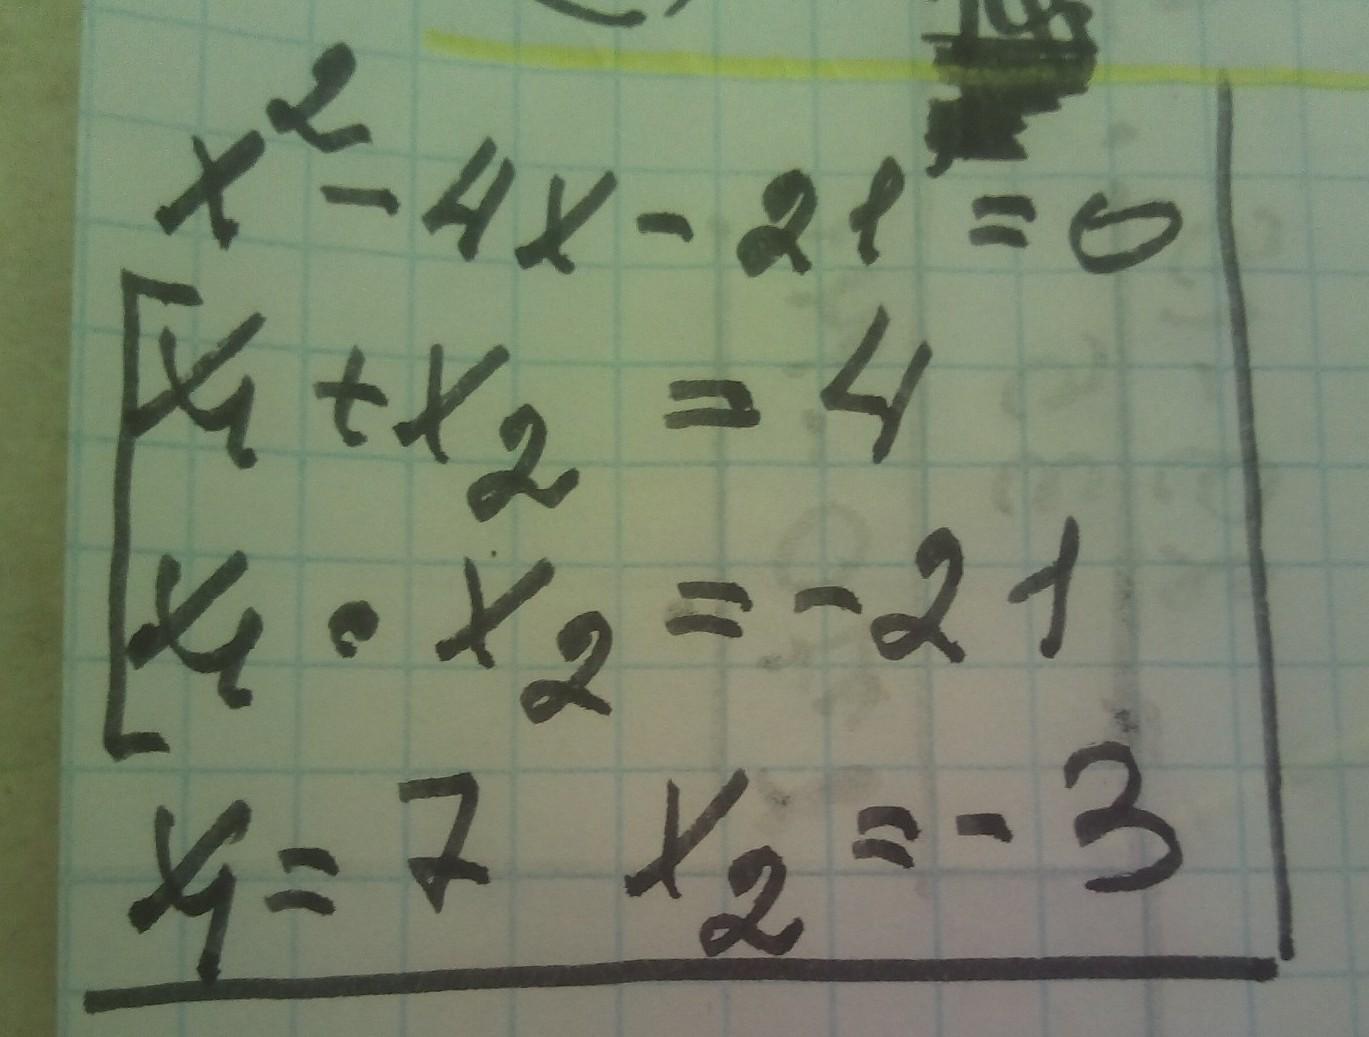 x² - 4x - 21 = 0
x₁ + x₂ = 4
x₁ • x₂ = -21
x₁ = 7 x₂ = -3